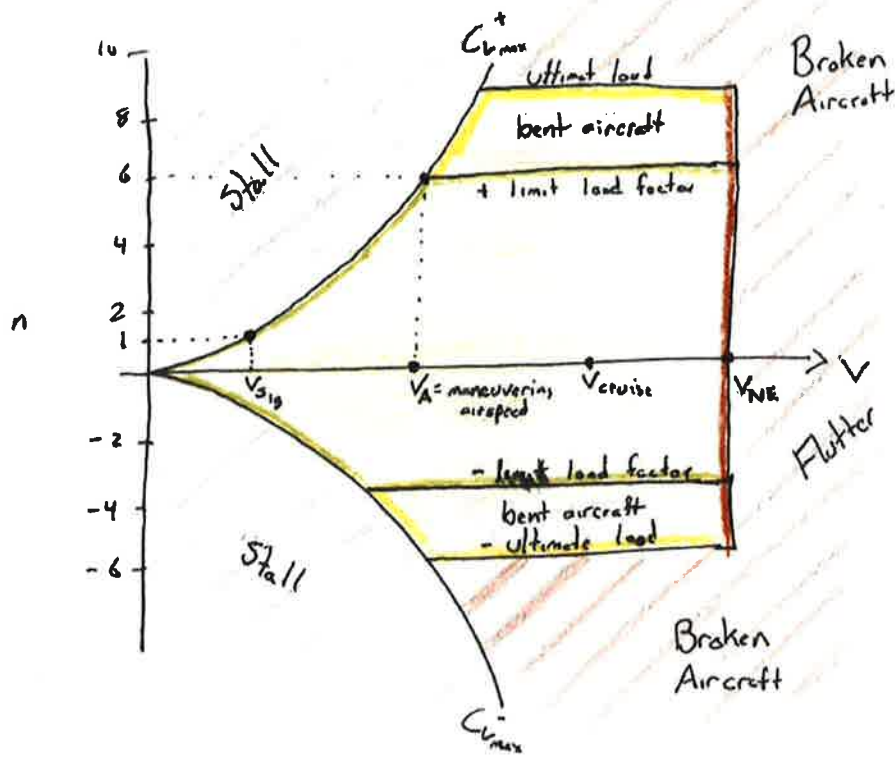 10
C_Lmax^+
ultimit load
Broken
Aircraft
8
bent aircraft
Stall
6
+ limit load factor
4
n
2
1
V_S1g
V_A = maneuvering
airspeed
V_cruise
V_NE
V
Flutter
-2
- limit load factor
-4
bent aircraft
- ultimate load
Stall
-6
Broken
Aircraft
C_Lmax^-